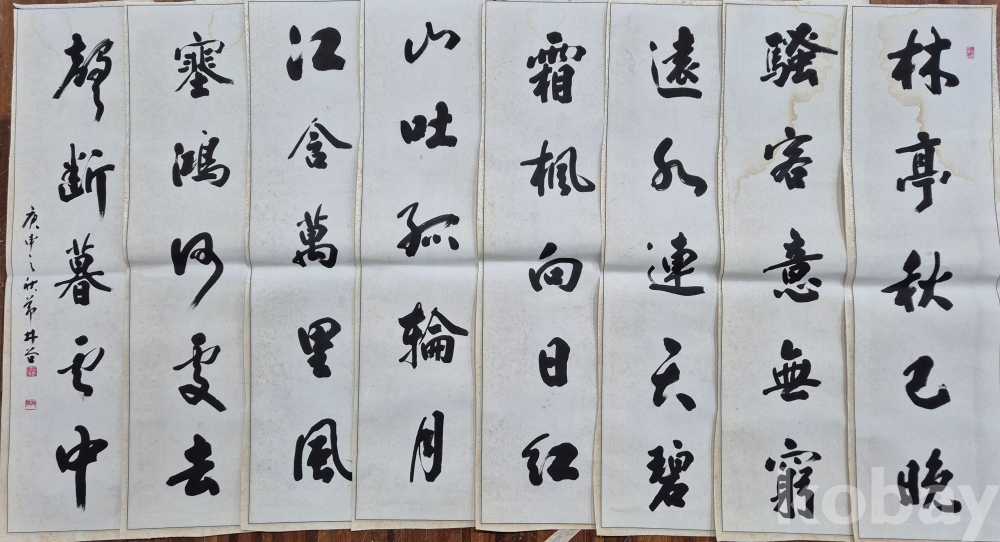 林亭秋已晚
騷客意無窮
遠水連天碧
霜楓向日紅
山吐孤輪月
江含萬里風
塞鴻何處去
聲斷暮云中
庚申之秋
kobay